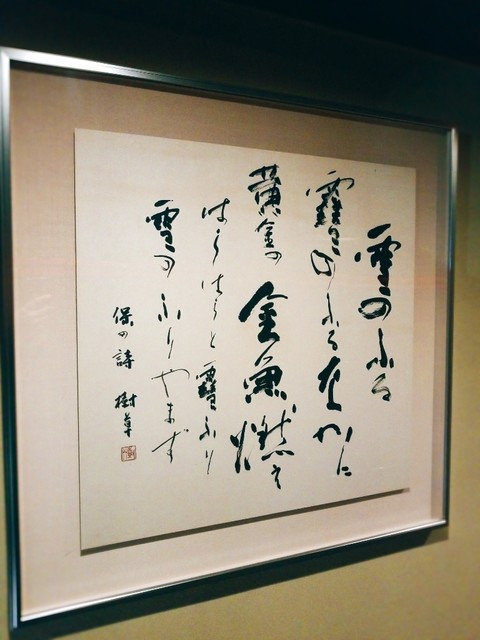 雪のふる
のふるなかに
黄金の金魚燃え
はらはらと ふり
雪のふりやまず
保の詩 樹草